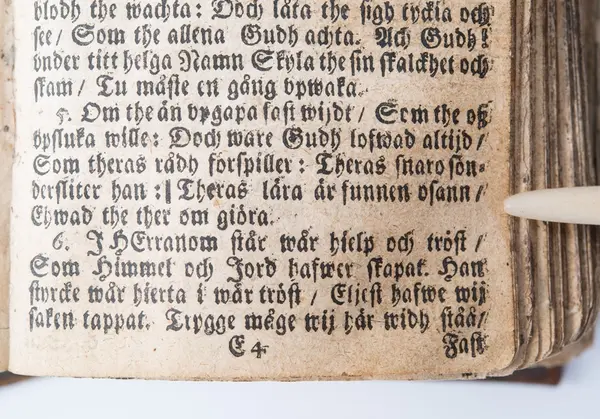 blodh the wachta: Doch låta the sigh tyckia och
see/ Som the allena Gudh achta. Ach Gudh!
vnder titt helga Namn Skyla the sin skalckhet och
skam/ Tu måste en gång vpwaka.
5. Om the än vpgapa fast wijdt/ Som the oß
vpsluka wille: Doch ware Gudh lofwad altijd/
Som theras rådh förspiller: Theras snaro sön-
dersliter han: Theras lära är funnen osann/
Ehwad the ther om giöra.
6. J HErranom står wår hielp och tröst/
Som Himmel och Jord hafwer skapat. Han
styrcke wår hierta i wår tröst/ Eljest hafwe wij
saken tappat. Trygge måge wij här widh ståå/
E 4 Fast